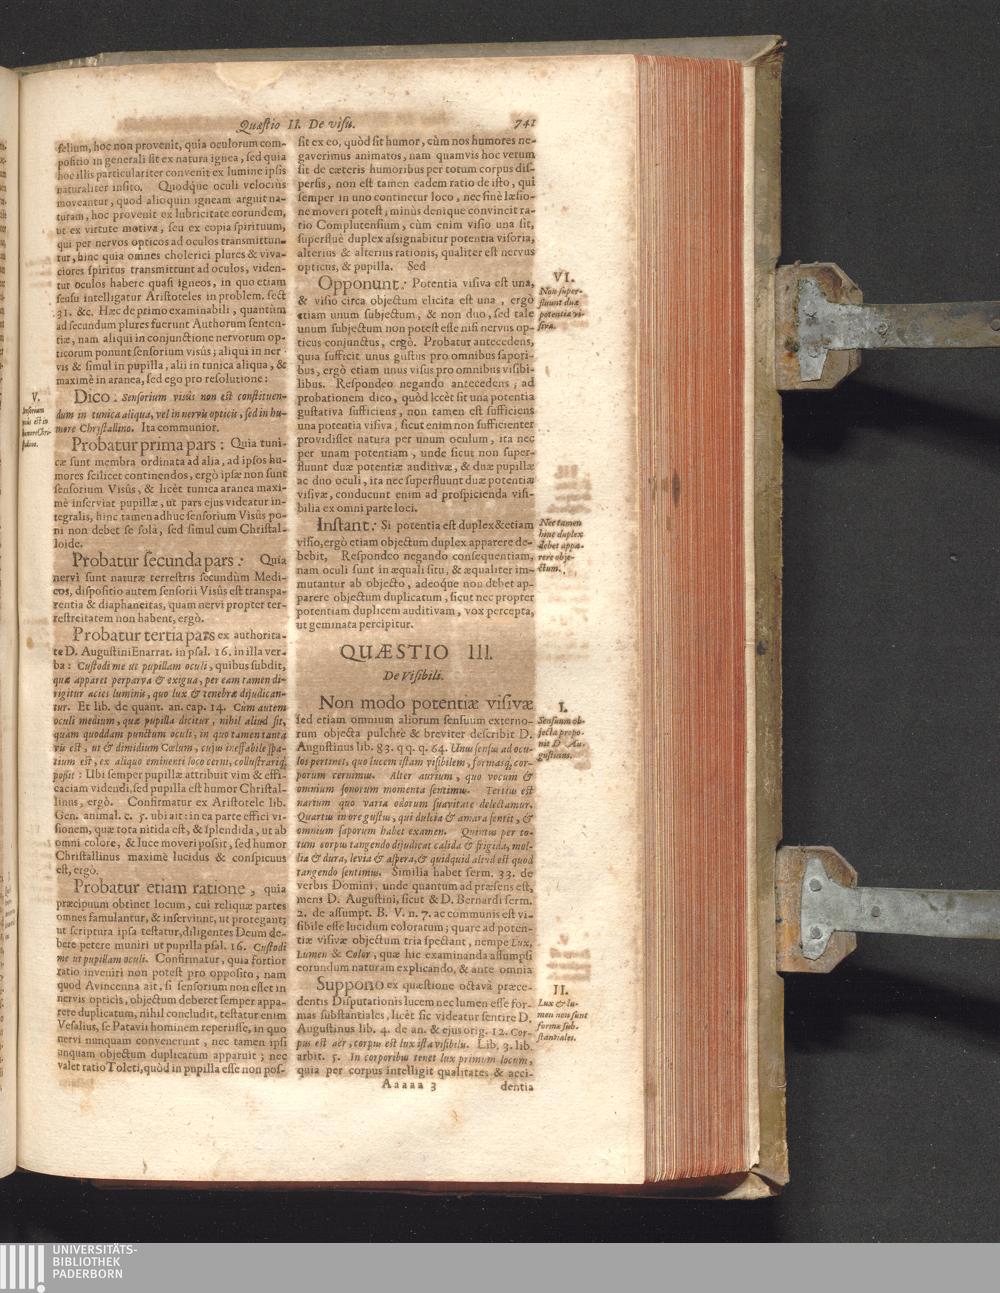 Quæstio II. De visu. 741
selium, hoc non provenit, quia oculorum com-
positio in generali sit ex natura ignea, sed quia
hoc illis particulariter convenit ex lumine ipsis
naturaliter insito. Quodque oculi velociùs
moveantur, quod alioquin igneam arguit na-
turam, hoc provenit ex lubricitate eorundem,
ut ex virtute motiva, seu ex copia spirituum,
qui per nervos opticos ad oculos transmittun-
tur, hinc quia omnes cholerici plures & viva-
ciores spiritus transmittunt ad oculos, viden-
tur oculos habere quasi igneos, in quo etiam
sensu intelligatur Aristoteles in problem. sect
31. &c. Hæc de primo examinabili, quantùm
ad secundum plures fuerunt Authorum senten-
tiæ, nam aliqui in conjunctione nervorum op-
ticorum ponunt sensorium visûs; aliqui in ner-
vis & simul in pupilla, alii in tunica aliqua, &
maximè in aranea, sed ego pro resolutione:
V.
Dico. Sensorium visûs non est constituen-
dum in tunica aliqua, vel in nervis opticis, sed in hu-
more Chrystallino. Ita communior.
Probatur prima pars: Quia tuni-
cæ sunt membra ordinata ad alia, ad ipsos hu-
mores scilicet continendos, ergò ipsæ non sunt
sensorium Visûs, & licèt tunica aranea maxi-
mè inserviat pupillæ, ut pars ejus videatur in-
tegralis, hinc tamen adhuc sensorium Visûs po-
ni non debet se sola, sed simul cum Christal-
loide.
Probatur secunda pars: Quia
nervi sunt naturæ terrestris secundùm Medi-
cos, dispositio autem sensorii Visûs est transpa-
rentia & diaphaneitas, quam nervi propter ter-
restreitatem non habent, ergò.
Probatur tertia pars ex authorita-
te D. Augustini Enarrat. in psal. 16. in illa ver-
ba: Custodi me ut pupillam oculi, quibus subdit,
quæ apparet perparva & exigua, per eam tamen di-
rigitur acies luminis, quo lux & tenebræ dijudican-
tur. Et lib. de quant. an. cap. 14. Cùm autem
oculi medium, quæ pupilla dicitur, nihil aliud sit,
quam quoddam punctum oculi, in quo tamen tanta
vis est, ut & dimidium Cœlum, cujus ineffabile spa-
tium est, ex aliquo eminenti loco cerni, collustrariq;
possit: Ubi semper pupillæ attribuit vim & effi-
caciam videndi, sed pupilla est humor Christal-
linus, ergò. Confirmatur ex Aristotele lib.
Gen. animal. c. 5. ubi ait: in ea parte effici vi-
sionem, quæ tota nitida est, & splendida, ut ab
omni colore, & luce moveri possit, sed humor
Christallinus maximè lucidus & conspicuus
est, ergò.
Probatur etiam ratione, quia
præcipuum obtinet locum, cui reliquæ partes
omnes famulantur, & inserviunt, ut protegant;
ut scriptura ipsa testatur, diligentes Deum de-
bere petere muniri ut pupilla psal. 16. Custodi
me ut pupillam oculi. Confirmatur, quia fortior
ratio inveniri non potest pro opposito, nam
quod Avincenna ait, si sensorium non esset in
nervis opticis, objectum deberet semper appa-
rere duplicatum, nihil concludit, testatur enim
Vesalius, se Patavii hominem reperiisse, in quo
nervi nunquam convenerunt, nec tamen ipsi
unquam objectum duplicatum apparuit; nec
valet ratio Toleti, quòd in pupilla esse non pos-
sit ex eo, quòd sit humor, cùm nos humores ne-
gaverimus animatos, nam quamvis hoc verum
sit de cæteris humoribus per totum corpus dis-
persis, non est tamen eadem ratio de isto, qui
semper in uno continetur loco, nec sinè læsio-
ne moveri potest, minùs denique convincit ra-
tio Complutensium, cùm enim visio una sit,
superfluè duplex assignabitur potentia visoria,
alterius & alterius rationis, qualiter est nervus
opticus, & pupilla. Sed
VI.
Non super-
fluunt duæ
potentiæ vi-
sivæ.
Opponunt: Potentia visiva est una,
& visio circa objectum elicita est una, ergò
etiam unum subjectum, & non duo, sed tale
unum subjectum non potest esse nisi nervus op-
ticus conjunctus, ergò. Probatur antecedens,
quia sufficit unus gustus pro omnibus sapori-
bus, ergò etiam unus visus pro omnibus visibi-
libus. Respondeo negando antecedens, ad
probationem dico, quòd licèt sit una potentia
gustativa sufficiens, non tamen est sufficiens
una potentia visiva, sicut enim non sufficienter
providisset natura per unum oculum, ita nec
per unam potentiam, unde sicut non super-
fluunt duæ potentiæ auditivæ, & duæ pupillæ
ac duo oculi, ita nec superfluunt duæ potentiæ
visivæ, conducunt enim ad prospicienda visi-
bilia ex omni parte loci.
Nec tamen
hinc duplex
debet appa-
rere obje-
ctum.
Instant: Si potentia est duplex & etiam
visio, ergò etiam objectum duplex apparere de-
bebit, Respondeo negando consequentiam,
nam oculi sunt in æquali situ, & æqualiter im-
mutantur ab objecto, adeoque non debet ap-
parere objectum duplicatum, sicut nec propter
potentiam duplicem auditivam, vox percepta,
ut geminata percipitur.
QUÆSTIO III.
De Visibili.
I.
Sensuum ob-
jecta propo-
nit D. Au-
gustinus.
Non modo potentiæ visivæ
sed etiam omnium aliorum sensuum externo-
rum objecta pulchrè & breviter describit D.
Augustinus lib. 83. q q. q. 64. Unus sensus ad ocu-
los pertinet, quo lucem istam visibilem, formasq; cor-
porum cernimus. Alter aurium, quo vocum &
omnium sonorum momenta sentimus. Tertius est
narium quo varia odorum suavitate delectamur.
Quartus in ore gustus, qui dulcia & amara sentit, &
omnium saporum habet examen. Quintus per to-
tum corpus tangendo dijudicat calida & frigida, mol-
lia & dura, levia & aspera, & quidquid aliud est quod
tangendo sentimus. Similia habet serm. 33. de
verbis Domini, unde quantum ad præsens est,
mens D. Augustini, sicut & D. Bernardi serm.
2. de assumpt. B. V. n. 7. ac communis est vi-
sibile esse lucidum coloratum; quare ad poten-
tiæ visivæ objectum tria spectant, nempe Lux,
Lumen & Color, quæ hic examinanda assumpsi
eorundum naturam explicando, & ante omnia
II.
Lux & lu-
men non sunt
formæ sub-
stantiales.
Suppono ex quæstione octavâ præce-
dentis Disputationis lucem nec lumen esse for-
mas substantiales, licèt sic videatur sentire D.
Augustinus lib. 4. de an. & ejus orig. 12. Cor-
pus est aër, corpus est lux ista visibilis. Lib. 3. lib.
arbit. 5. In corporibus tenet lux primum locum,
quia per corpus intelligit qualitates & acci-
Aaaaa 3 dentia
UNIVERSITÄTS-
BIBLIOTHEK
PADERBORN